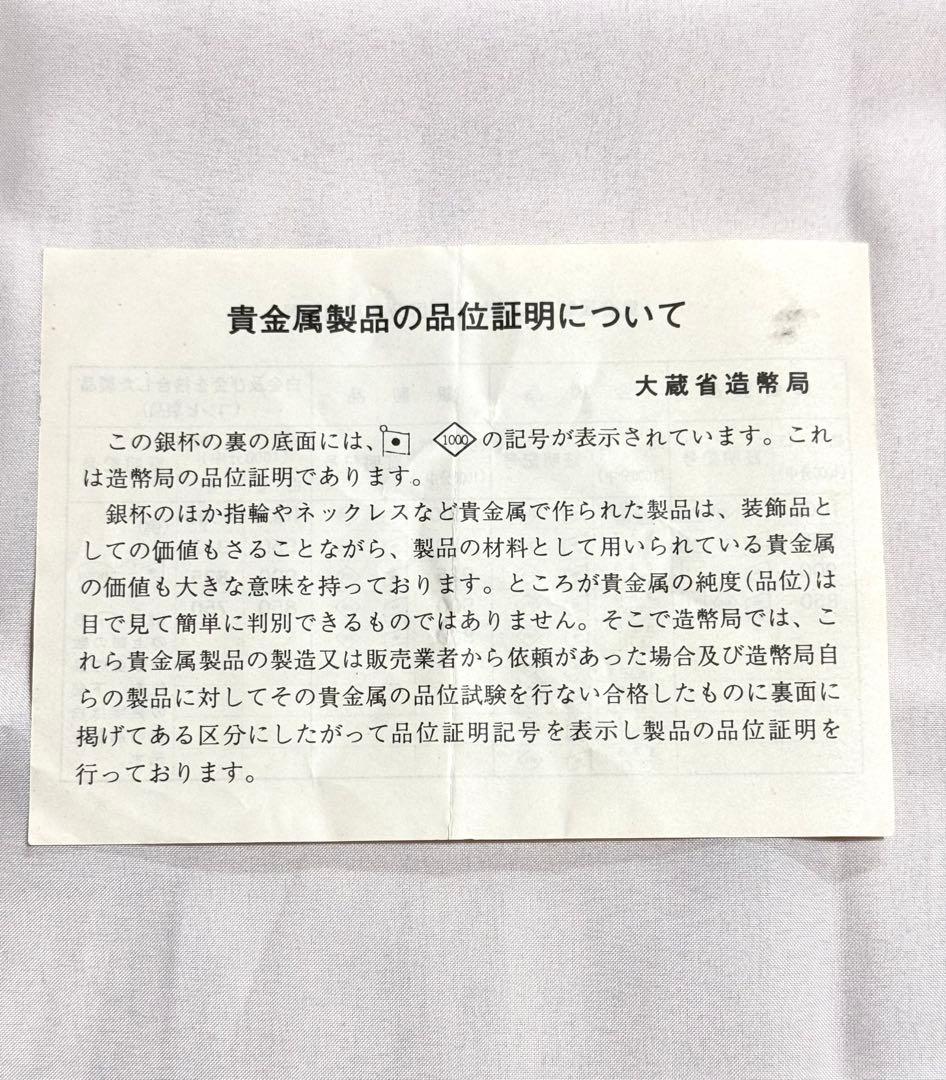 貴金属製品の品位証明について
大蔵省造幣局
この銀杯の裏の底面には、 1000 の記号が表示されています。これ
は造幣局の品位証明であります。
銀杯のほか指輪やネックレスなど貴金属で作られた製品は、装飾品と
しての価値もさることながら、製品の材料として用いられている貴金属
の価値も大きな意味を持っております。ところが貴金属の純度(品位)は
目で見て簡単に判別できるものではありません。そこで造幣局では、こ
れら貴金属製品の製造又は販売業者から依頼があった場合及び造幣局自
らの製品に対してその貴金属の品位試験を行ない合格したものに裏面に
掲げてある区分にしたがって品位証明記号を表示し製品の品位証明を
行っております。